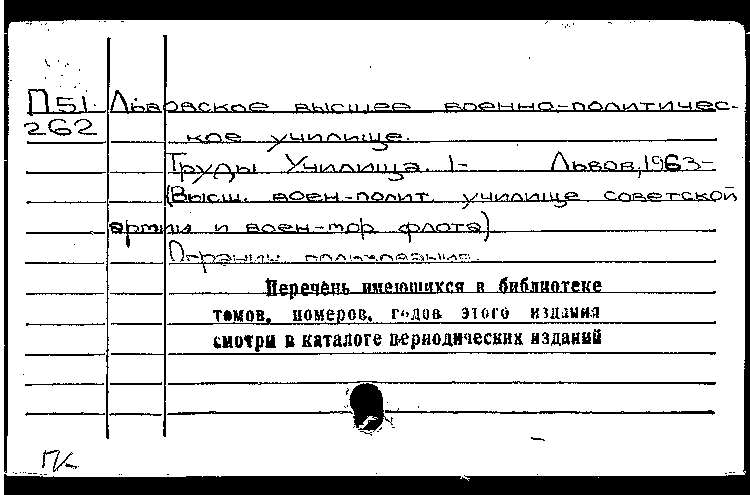 П51. Львовское высшее военно-политичес-
262 кое училище.
Труды Училища. 1- Львов, 1963-
(Высш. воен-полит. училище советской
армии и воен-мор. флота)
Перечень имеющихся в библиотеке
томов, номеров, годов этого издания
смотри в каталоге периодических изданий
ПК